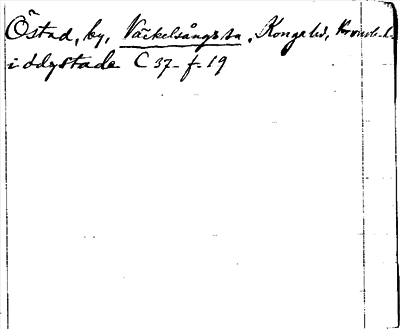 Östad, by, Väckelsångs sn, Konga hd, Kronob. l.
i ödgstade C 37 - f - 19